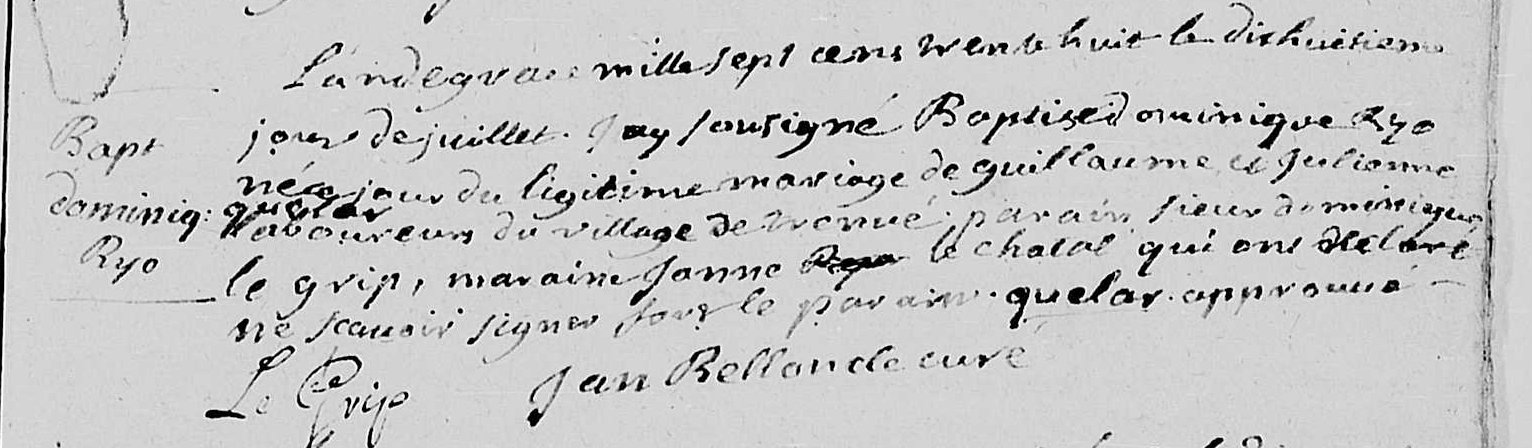 L'an de grace mille sept cens trente huit le dixhuitieme
Bapt
dominiq:
Ryo
jour de juillet. J'ay sousigné Baptisé dominique Ryo
né ce jour du ligitime mariage de guillaume et Julienne
quelar
laboureurs du village de trenué. parain sieur dominique
le grip, maraine Janne le chalal qui ont declaré
ne scauoir signer fors le parain. quelar. approuué
Le Grip Jan Bellande curé